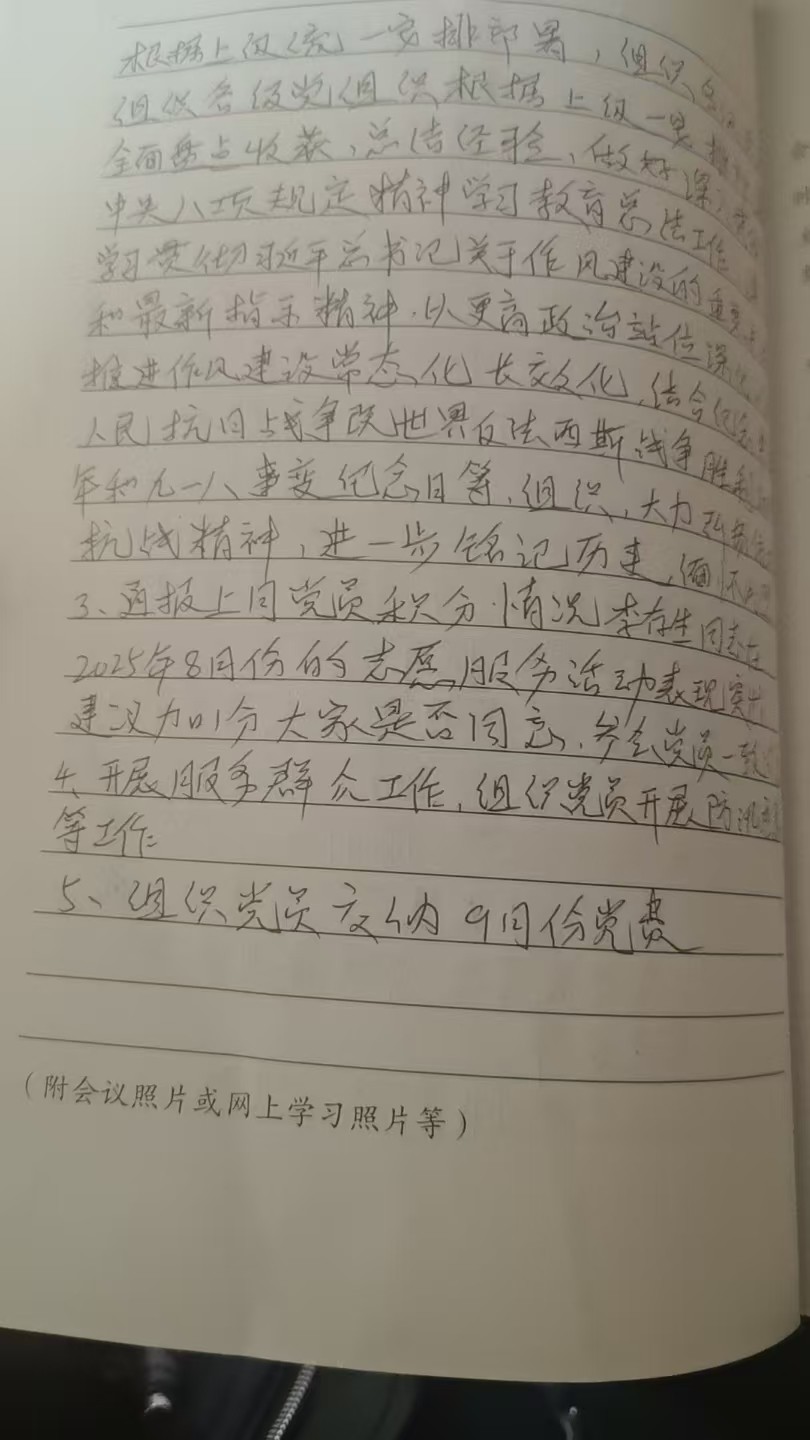 根据上级统一安排部署，组织
组织各级党组织根据上级一
全面盘点收获、总结经验，做好深
中央八项规定精神学习教育总结工作
学习贯彻习近平总书记关于作风建设的重要
和最新指示精神，以更高政治站位深
推进作风建设常态化长效化，结合纪念
人民抗日战争暨世界反法西斯战争胜利
年和九一八事变纪念日等，组织，大力弘扬
抗战精神，进一步铭记历史，缅怀
3、通报上月党员积分情况李存生同志在
2025年8月份的志愿服务活动表现突出
建议加1分大家是否同意，参会党员一致
4、开展服务群众工作，组织党员开展防汛
等工作
5、组织党员交纳9月份党费
（附会议照片或网上学习照片等）